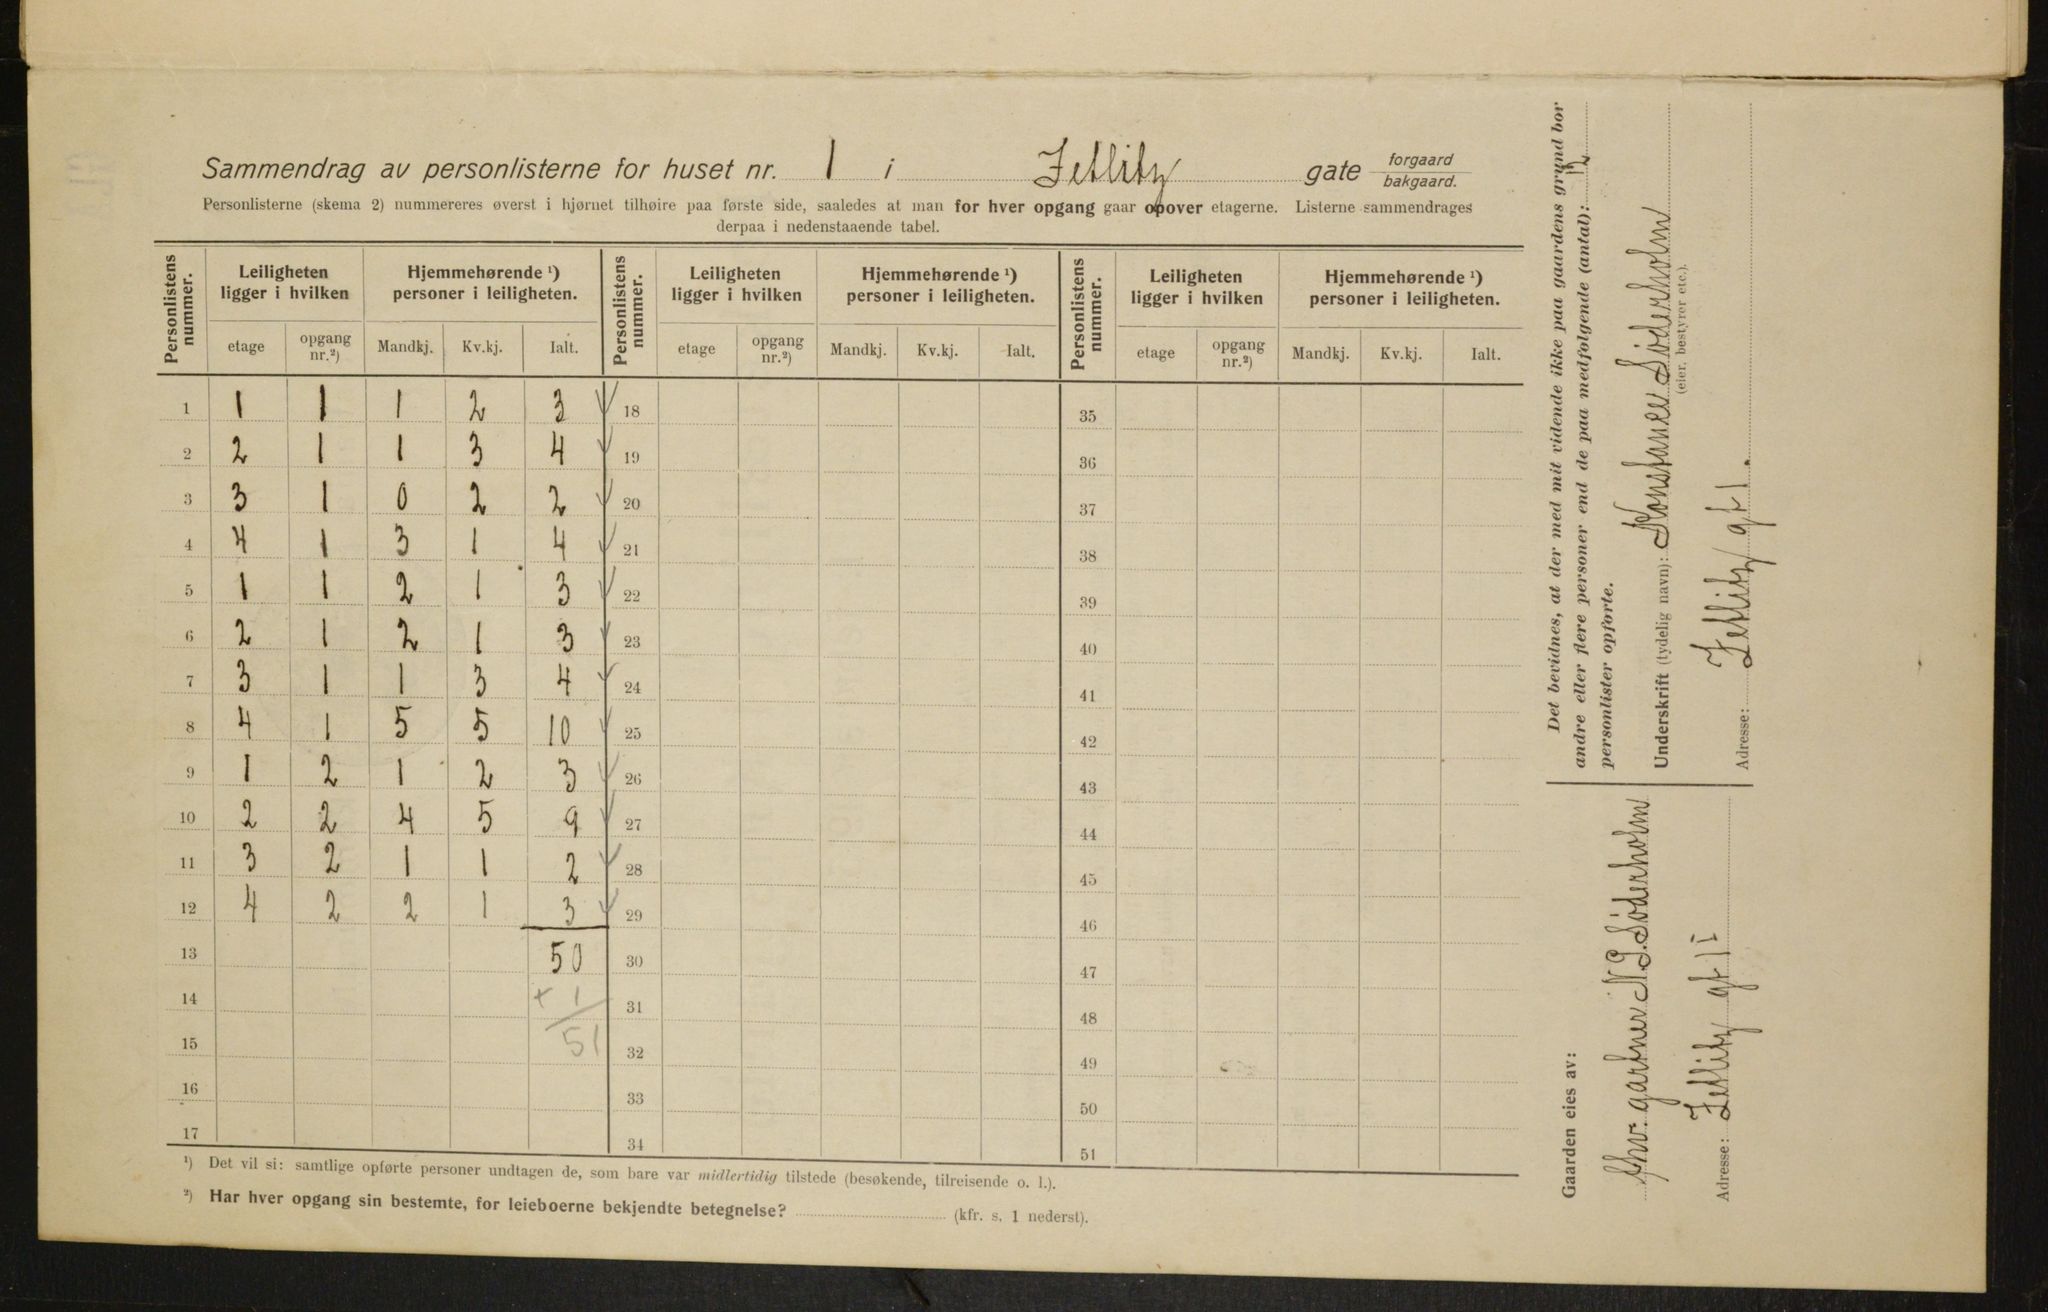 Sammendrag av personlisterne for huset nr. 1 i Zetlitz gate forgaard bakgaard.
Personlisterne (skema 2) nummereres øverst i hjørnet tilhøire paa første side, saaledes at man for hver opgang gaar opover etagerne. Listerne sammendrages
derpaa i nedenstaaende tabel.
Personlistens nummer. Leiligheten ligger i hvilken Hjemmehørende ¹) personer i leiligheten. Personlistens nummer. Leiligheten ligger i hvilken Hjemmehørende ¹) personer i leiligheten. Personlistens nummer. Leiligheten ligger i hvilken Hjemmehørende ¹) personer i leiligheten.
etage opgang nr.²) Mandkj. Kv.kj. Ialt. etage opgang nr.²) Mandkj. Kv.kj. Ialt. etage opgang nr.²) Mandkj. Kv.kj. Ialt.
1 1 1 1 2 3 18 35
2 2 1 1 3 4 19 36
3 3 1 0 2 2 20 37
4 4 1 3 1 4 21 38
5 1 1 2 1 3 22 39
6 2 1 2 1 3 23 40
7 3 1 1 3 4 24 41
8 4 1 5 5 10 25 42
9 1 2 1 2 3 26 43
10 2 2 4 5 9 27 44
11 3 2 1 1 2 28 45
12 4 2 2 1 3 29 46
13 50 30 47
14 + 1 31 48
15 51 32 49
16 33 50
17 34 51
¹) Det vil si: samtlige opførte personer undtagen de, som bare var midlertidig tilstede (besøkende, tilreisende o. l.).
²) Har hver opgang sin bestemte, for leieboerne bekjendte betegnelse? (kfr. s. 1 nederst).
Det bevidnes, at der med mit vidende ikke paa gaardens grund bor
andre eller flere personer end de paa medfølgende (antal): 12
personlister opførte.
Underskrift (tydelig navn): Konstance Søderholm
(eier, bestyrer etc.).
Adresse: Zetlitz gt 1.
Gaarden eies av:
gartner N. P. Søderholm
Adresse: Zetlitz gt 1